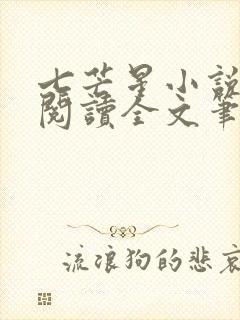 七芒星小說
閱讀全文筆
流浪狗的悲哀